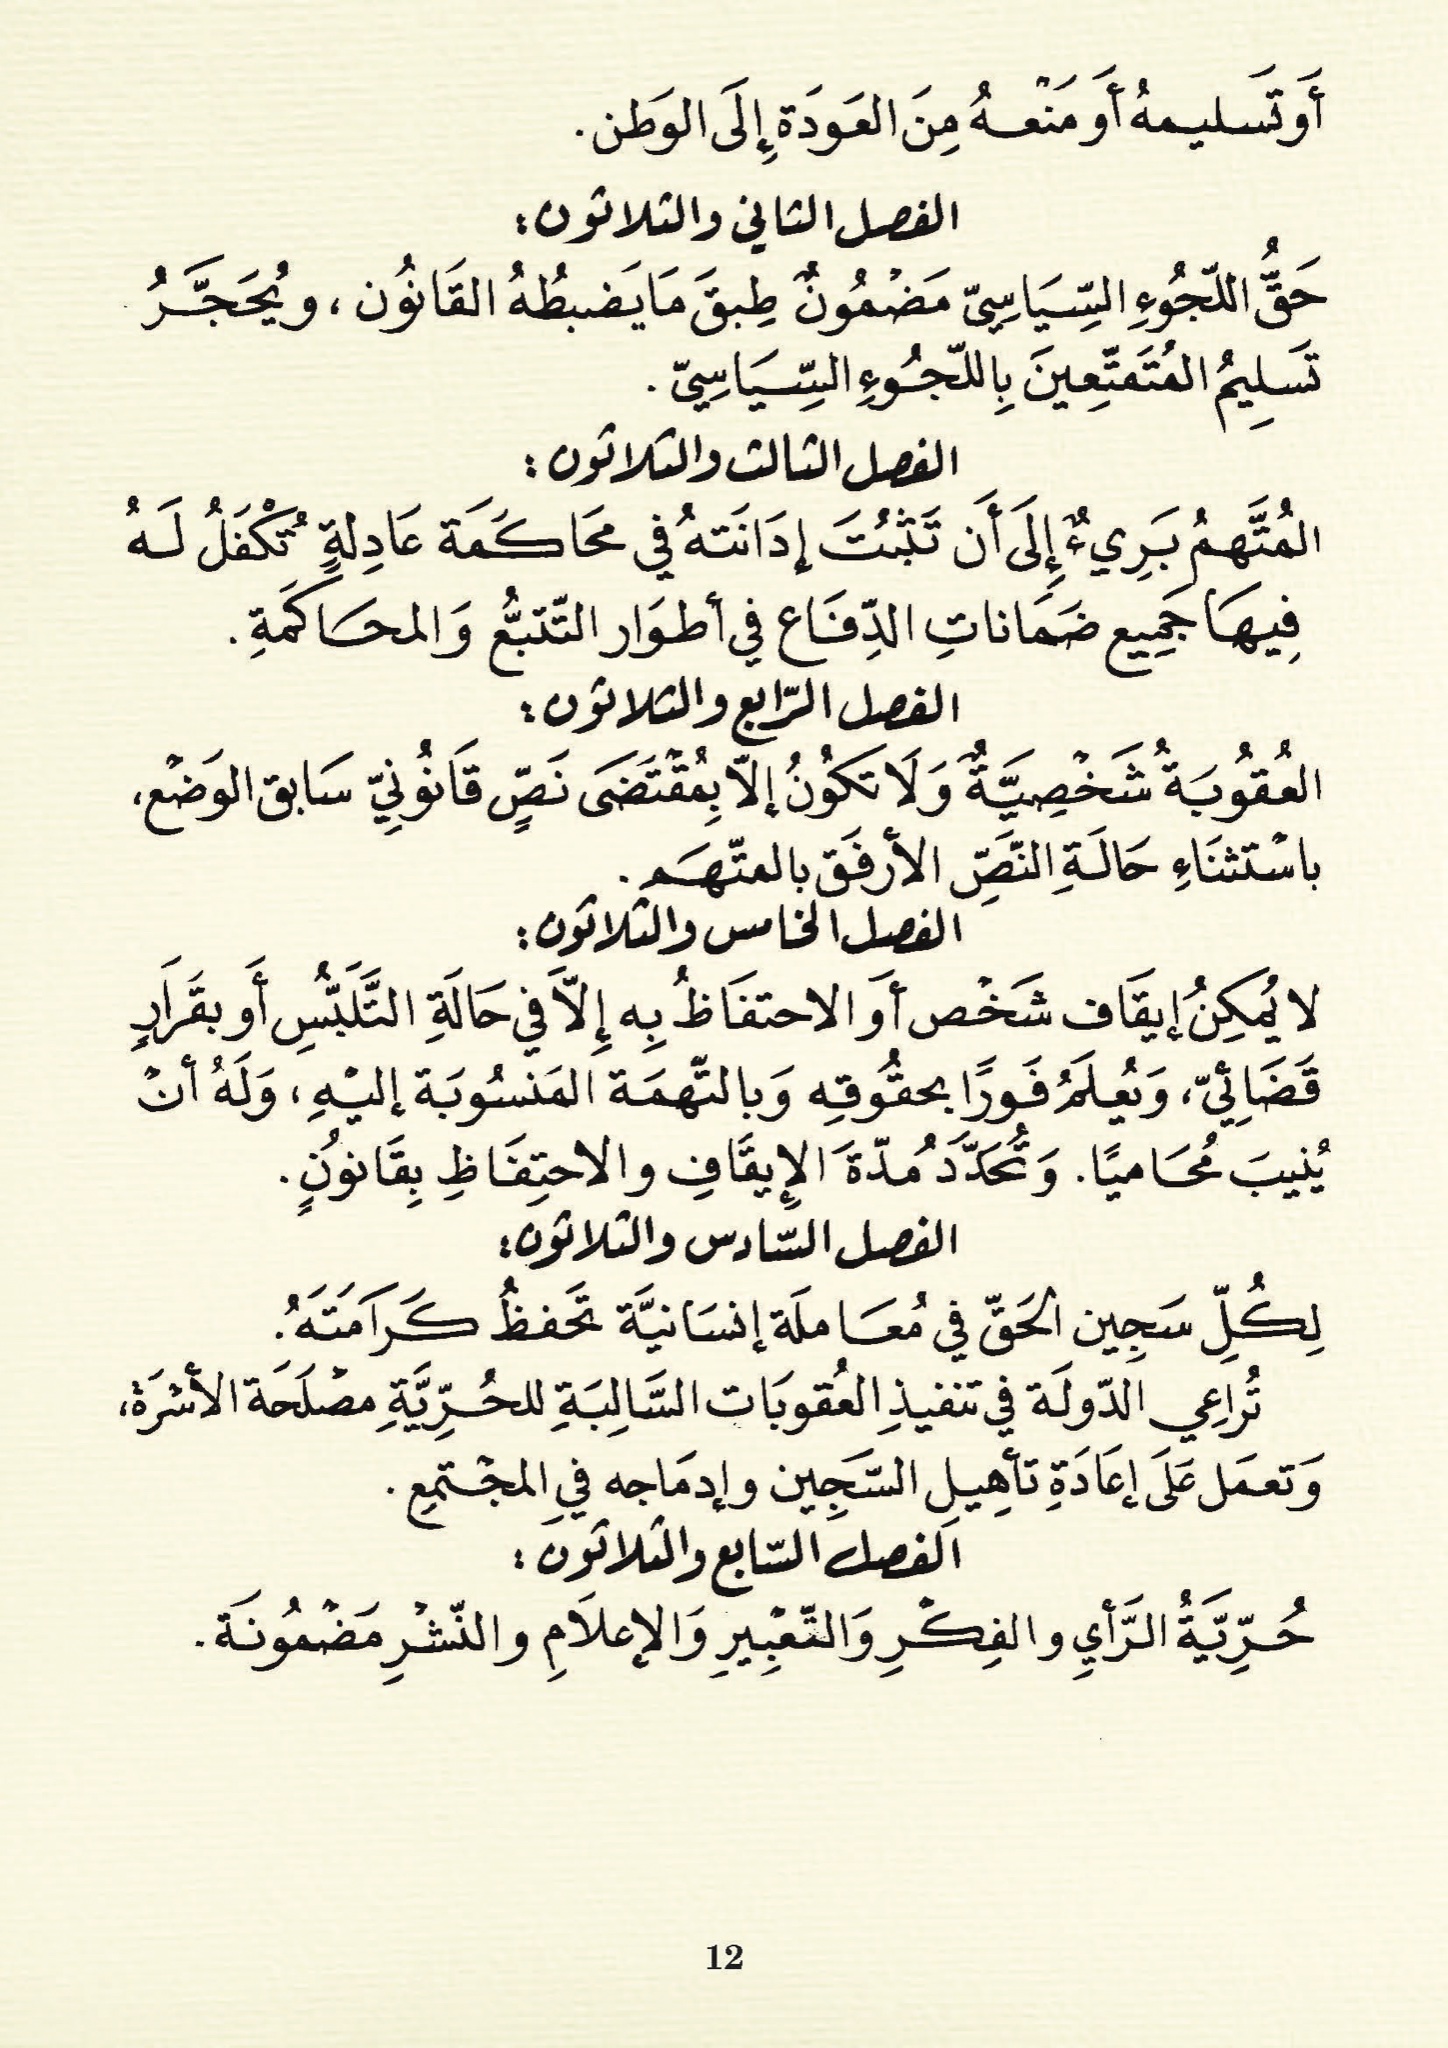 أَو تَسليمهُ أَو مَنْعهُ مِنَ العَودَة إِلَى الوَطن.
الفصل الثاني والثلاثون:
حَقُّ اللّجُوءِ السِّيَاسِيّ مَضْمُونٌ طِبقَ مَا يَضبطُهُ القَانُون، ويُحَجَّرُ
تَسلِيمُ المُتَمَتِّعِينَ بِاللّجُوءِ السِّيَاسِيّ.
الفصل الثالث والثلاثون:
المُتَّهمُ بَرِيءٌ إِلَى أَن تَثْبُتَ إدَانَتهُ في محَاكَمَة عَادِلةٍ تُكْفَلُ لَهُ
فِيهَا جَمِيع ضَمَاناتِ الدِّفَاع في أطوَار التّتبُّع وَالمحَاكَمَةِ.
الفصل الرّابع والثلاثون:
العُقُوبَةُ شَخْصِيَّةٌ وَلَا تَكُونُ إلّا بِمُقْتَضَى نَصٍّ قَانُونِيّ سَابق الوَضْع،
باسْتثنَاءِ حَالَةِ النَّصِّ الأرفَق بالمتّهَم.
الفصل الخامس والثلاثون:
لا يُمكِنُ إيقَاف شَخْص أَو الاحتفَاظُ بِه إِلاَّ في حَالَةِ التَّلَبُّسِ أَو بقَرَارٍ
قَضَائِيّ، وَيُعلَمُ فَورًا بحقُوقِه وَبالتّهمَة المَنسُوبَة إليْهِ، وَلَهُ أنْ
يُنيبَ مُحَاميًا. وَتُحَدَّدَ مُدّةَ الإِيقَافِ والاحتِفَاظِ بِقَانونٍ.
الفصل السّادس والثلاثون:
لِكُلِّ سَجِين الحَقّ في مُعَاملَة إنسَانيَّة تَحفظُ كَرَامَتَهُ.
تُراعِي الدّولَة في تنفيذِ العُقوبَات السَّالِبَةِ للحُرِّيَّةِ مصْلَحَة الأسْرَةْ،
وَتعمَل عَلَى إعَادَةِ تأهِيلِ السَّجِين وإدمَاجه فيِ المجْتمعِ.
الفصل السّابع والثلاثون:
حُرِّيَّةُ الرَّأيِ والفِكْرِ وَالتّعْبِيرِ وَالإعلَامِ والنّشْرِ مَضْمُونَة.
12